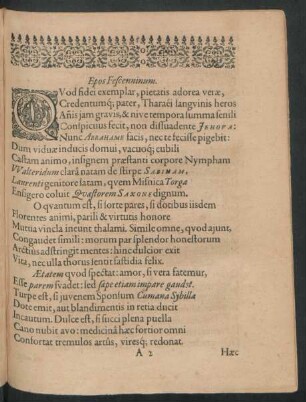 Epos Fescenninum.
QVod fidei exemplar, pietatis adorea veræ,
Credentumq; pater, Tharaëi sangvinis heros
Añis jam gravis, & nive tempora summa senili
Conspicuus fecit, non dissuadente JEHOVA:
Nunc ABRAHAME facis, necte fecisse pigebit:
Dum viduæ inducis domui, vacuoq; cubili
Castam animo, insignem præstanti corpore Nympham
VValteridum clarâ natam de stirpe SABINAM,
Laurenti genitore satam, qvem Misnica Torga
Ensigero coluit Qvæstorem SAXONE dignum,
O qvantum est, si sorte pares, si dotibus iisdem
Florentes animi, parili & virtutis honore
Mutua vincla ineunt thalami. Simile omne, qvod ajunt,
Congaudet simili: morum par splendor honestorum
Arctius adstringit mentes: hinc dulcior exit
Vita, nec ulla thorus sentit fastidia felix.
Ætatem qvod spectat: amor, si vera fatemur,
Esse parem svadet: sed sæpe etiam impare gaudet.
Turpe est, si juvenem Sponsum Cumana Sybilla
Dote emit, aut blandimentis in retia ducit
Incautum. Dulce est, si succi plena puella
Cano nubit avo: medicinâ hæc fortior omni
Confortat tremulos artus, viresq; redonat.
A 2 Hæc